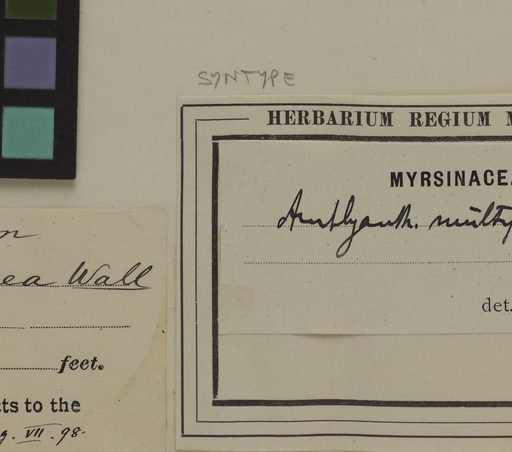 SYNTYPE
HERBARIUM REGIUM M
MYRSINACEA
Amblyanth. multi
det.
ea Wall
feet.
ts to the
g. VII. 98.